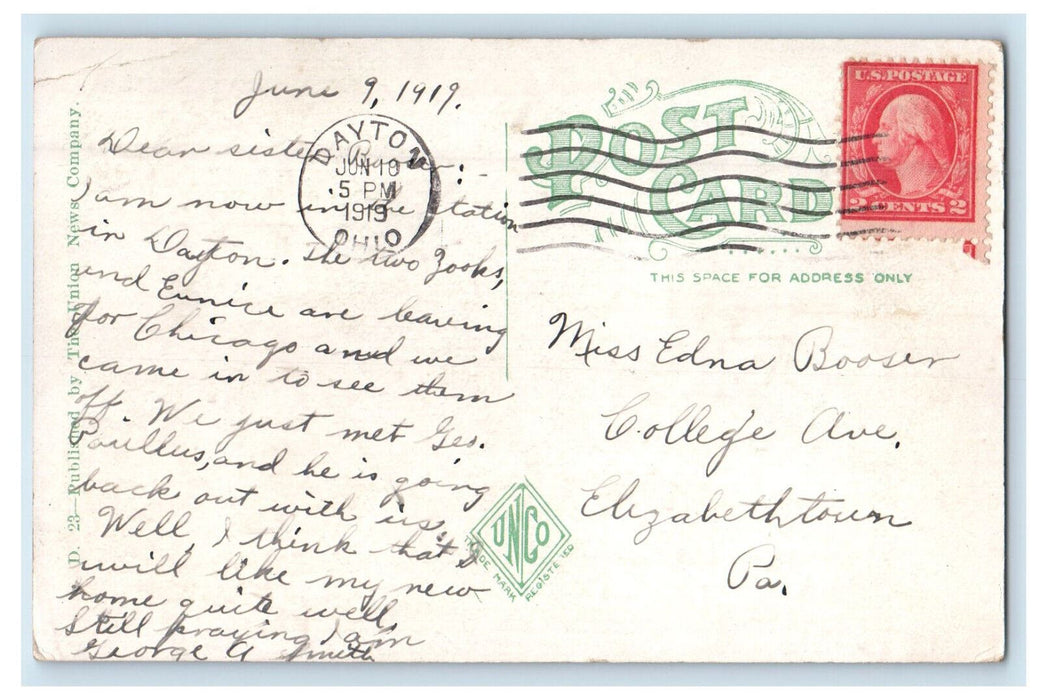 June 9, 1919.
Dear sister
I am now in the station
in Dayton. The two Zooks,
and Eunice are leaving
for Chicago and we
came in to see them
off. We just met Geo.
and he is going
back out with us.
Well, I think that I
will like my new
home quite well.
Still praying I am
George A Smith
DAYTON
JUN 10
5 PM
1919
OHIO
POST CARD
U.S. POSTAGE
2 CENTS 2
THIS SPACE FOR ADDRESS ONLY
Miss Edna Booser
College Ave.
Elizabethtown
Pa.
UNCO
TRADE MARK REGISTERED
D. 23—Published by The Union News Company.